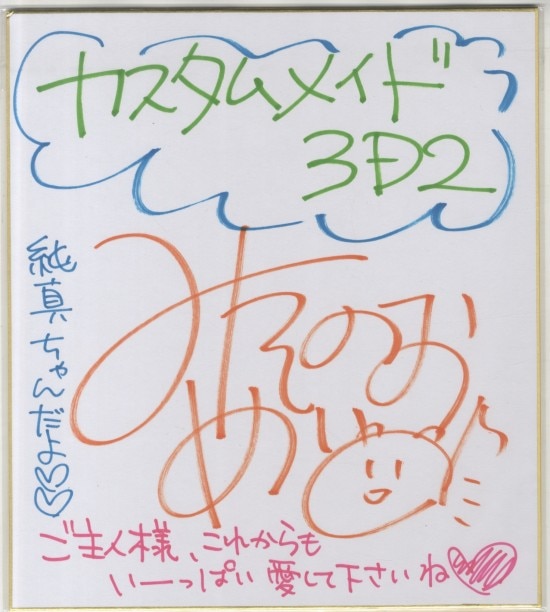 カスタムメイド
3D2
みそのお
めい
純真ちゃんだよ♡♡
ご主人様、これからも
いーっぱい愛して下さいね♡